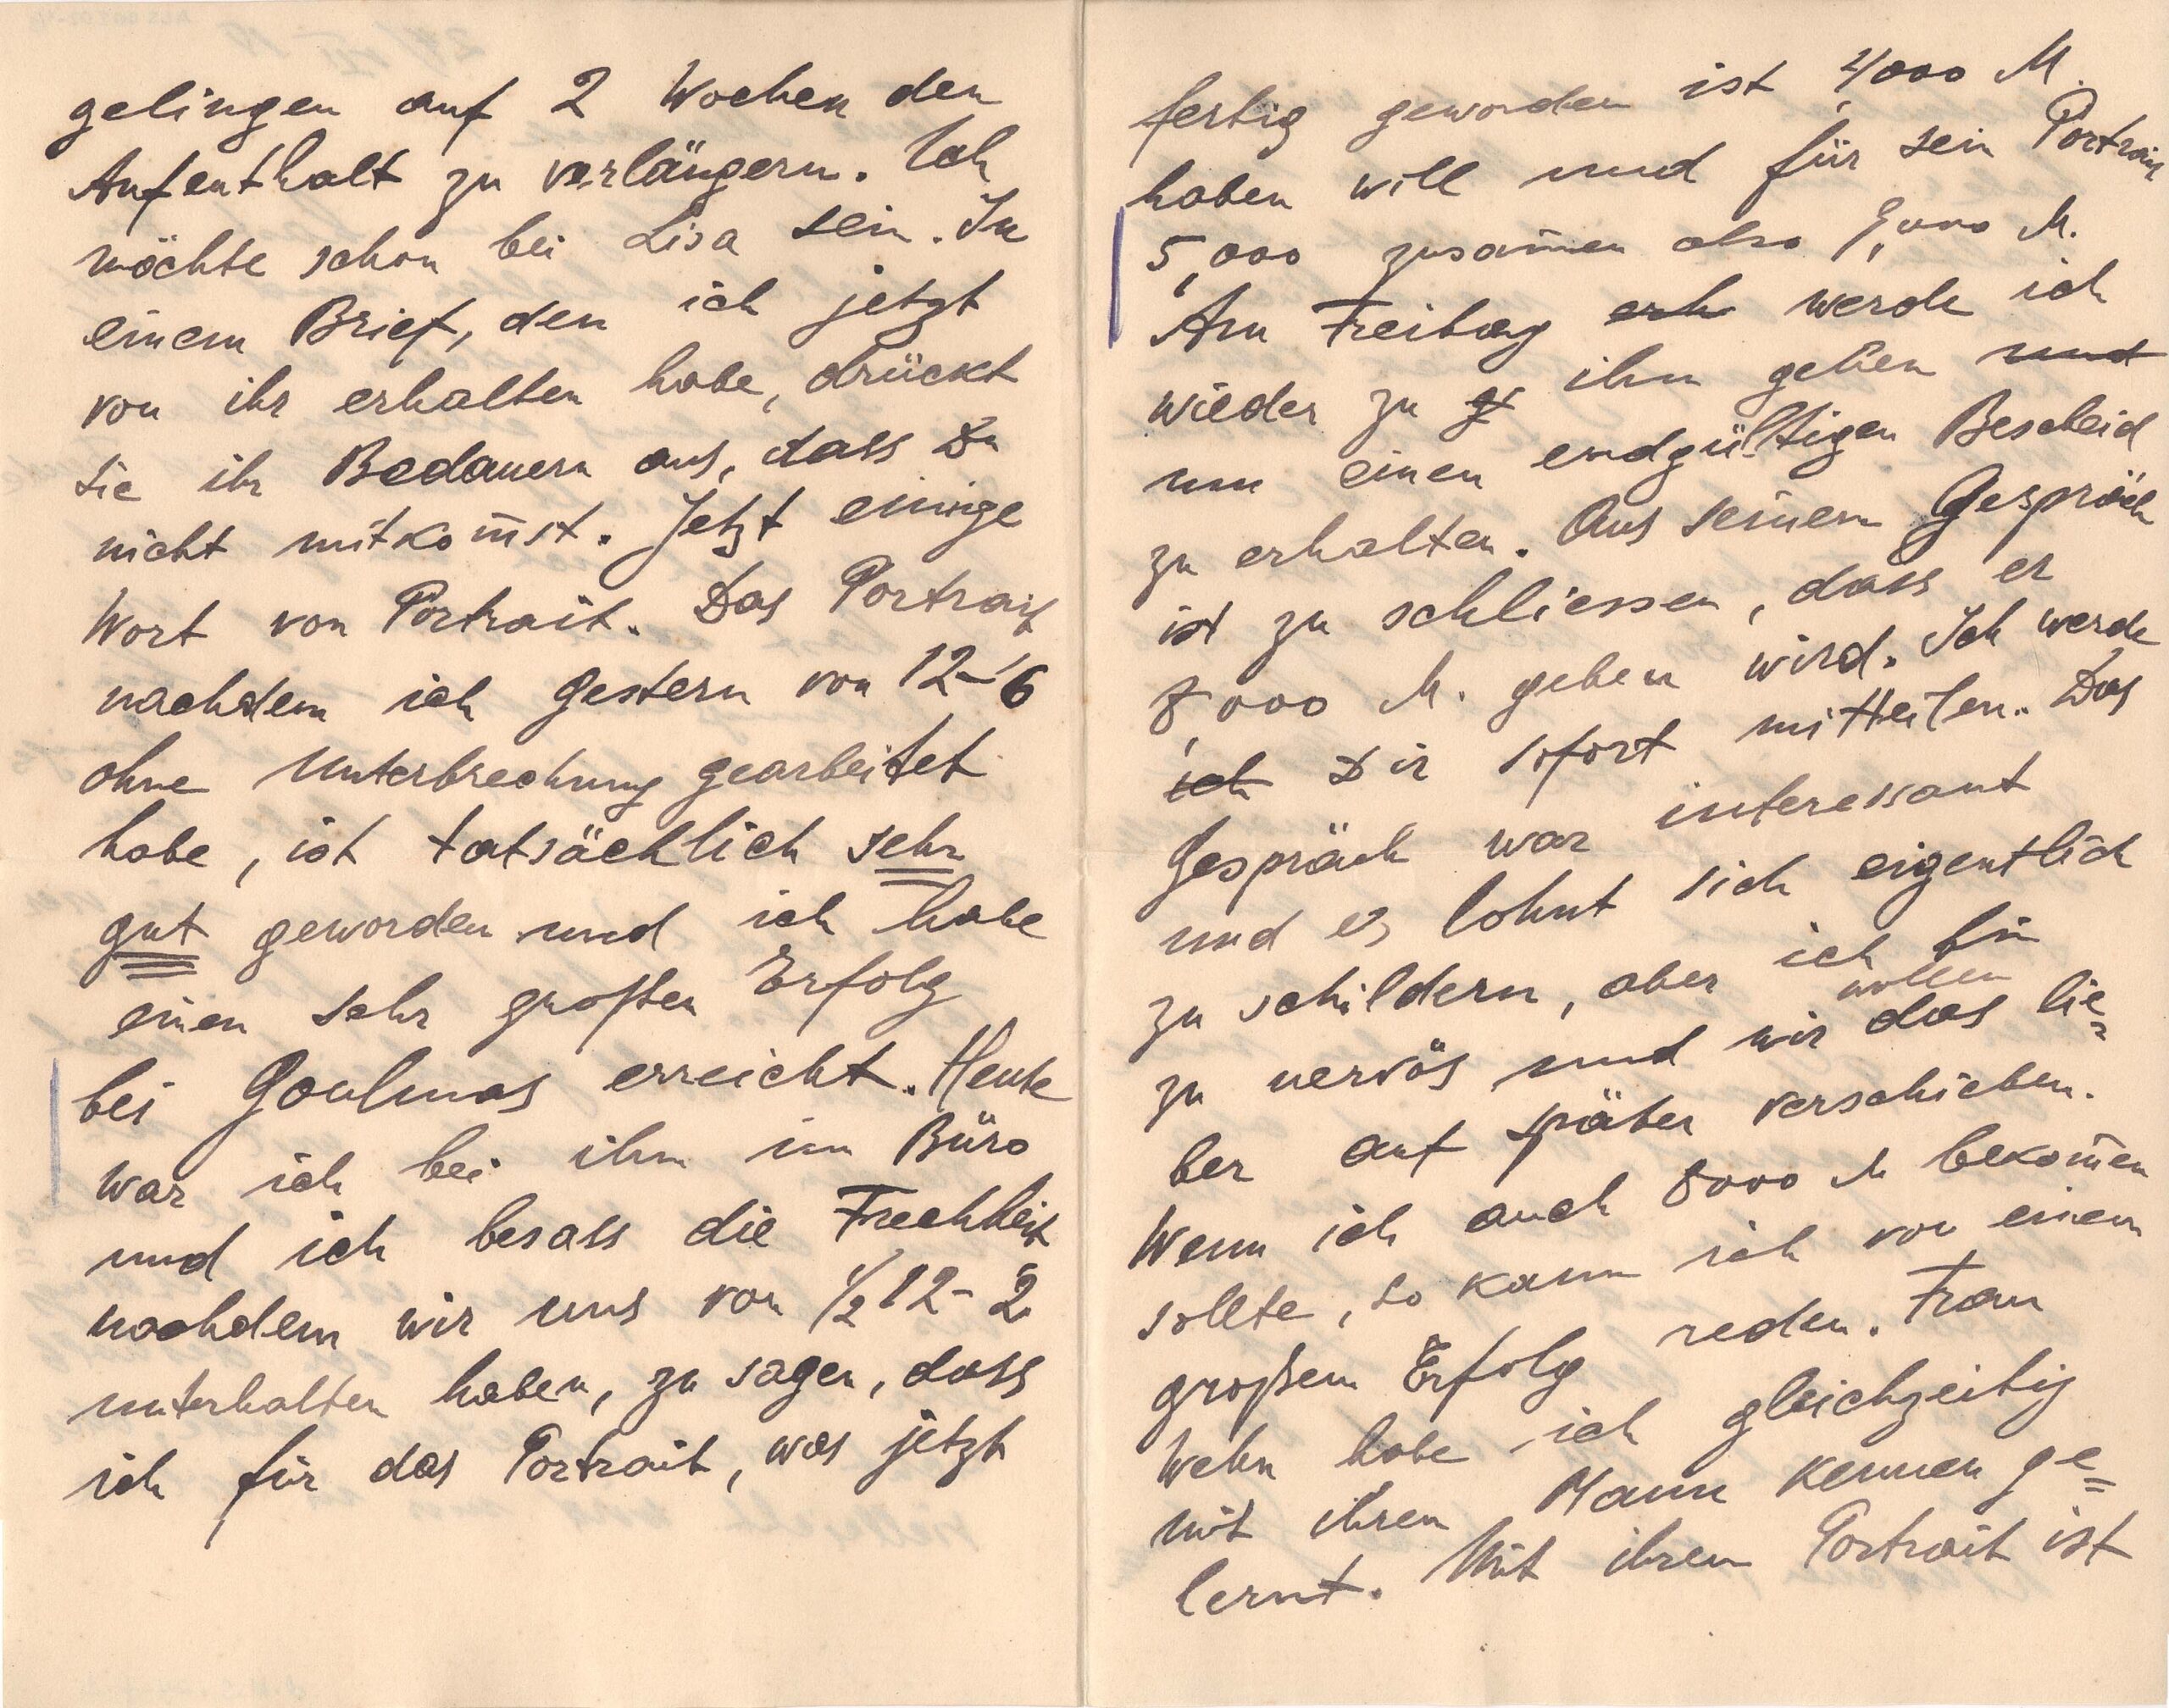 gelingen auf 2 Wochen den
Aufenthalt zu verlängern. Ich
möchte schon bei Lisa sein. In
einem Brief, den ich jetzt
von ihr erhalten habe, drückt
sie ihr Bedauern aus, dass Du
nicht mitkom̄st. Jetzt einige
Wort von Portrait. Das Portrait
nachdem ich gestern von 12-6
ohne Unterbrechung gearbeitet
habe, ist tatsächlich sehr
gut geworden und ich habe
einen sehr großen Erfolg
bei Goulmas erreicht. Heute
war ich bei ihm im Büro
und ich besass die Frechheit
nachdem wir uns von 1/2 12-2
unterhalten haben, zu sagen, dass
ich für das Portrait, was jetzt
fertig geworden ist 4000 M.
haben will und für sein Portrait
5,000 zusam̄en also 9,000 M.
Am Freitag erh werde ich
wieder zu g ihm gehen und
um einen endgültigen Bescheid
zu erhalten. Aus seinem Gespräch
ist zu schliessen, dass er
8,000 M. geben wird. Ich werde
ich Dir sofort mitteilen. Das
Gespräch war interessant
und es lohnt sich eigentlich
zu schildern, aber ich bin
wollen
zu nervös und wir das lie=
ber auf später verschieben.
Wenn ich auch 8000 M bekom̄en
sollte, so kann ich von einem
großem Erfolg reden. Frau
Wehn habe ich gleichzeitig
mit ihren Mann kennen ge=
lernt. Mit ihrem Portrait ist